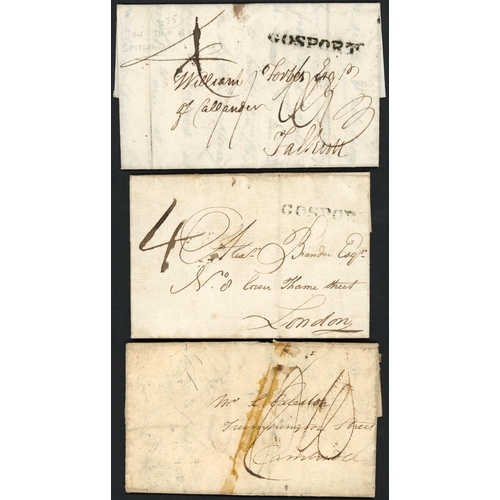 GOSPORT
William Forbes Esqr
of Callander
Falkirk
GOSPOR
4
Alexr Brander Esqr
No 8 lower Thame street
London
Mr
Trumpington Street
Cambridge